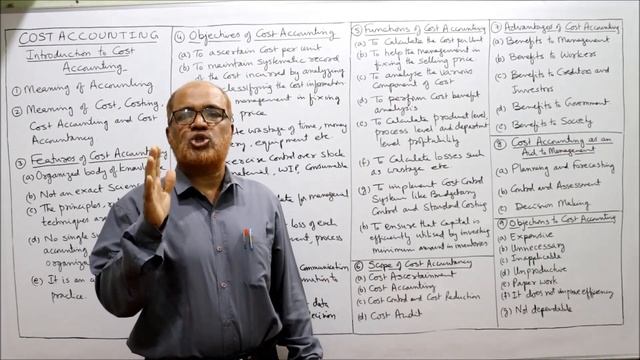 COST ACCOUNTING
Introduction to Cost
Accounting
① Meaning of Accounting
② Meaning of Cost, Costing,
Cost Accounting and Cost
Accountancy
③ Features of Cost Accounting
(a) Organized body of
(b) Not an exact
(c) The principles,
techniques are
(d) No single
accounting
organiz
(e) It is an
practice.
④ Objectives of Cost Accounting
(a) To ascertain Cost per unit
(b) To maintain systematic record
of the Cost incurred by analyzing
classifying the Cost information
management in fixing
price
wastage of time, money
equipment etc
exercise Control over stock
WIP, Consumable
for management
loss of each
process
Communication
to
data
decision
⑤ Functions of Cost Accounting
(a) To Calculate the Cost per Unit
(b) To help the management in
fixing the selling price
(c) To analyse the various
Component of Cost
(d) To perform Cost benefit
analysis
(e) To Calculate product level,
process level and department
level profitability
(f) To Calculate losses such
as wastage etc
(g) To implement Cost Control
System like Budgetary
Control and Standard Costing
(h) To ensure that Capital is
efficiently utilised by investing
minimum amount in inventories
⑥ Scope of Cost Accountancy
(a) Cost Ascertainment
(b) Cost Accounting
(c) Cost Control and Cost Reduction
(d) Cost Audit
⑦ Advantages of Cost Accounting
(a) Benefits to Management
(b) Benefits to Workers
(c) Benefits to Creditors and
Investors
(d) Benefits to Government
(e) Benefits to Society
⑧ Cost Accounting as an
Aid to Management
(a) Planning and Forecasting
(b) Control and Assessment
(c) Decision Making
⑨ Objections to Cost Accounting
(a) Expensive
(b) Unnecessary
(c) Inapplicable
(d) Unproductive
(e) Paper work
(f) It does not improve efficiency
(g) Not dependable